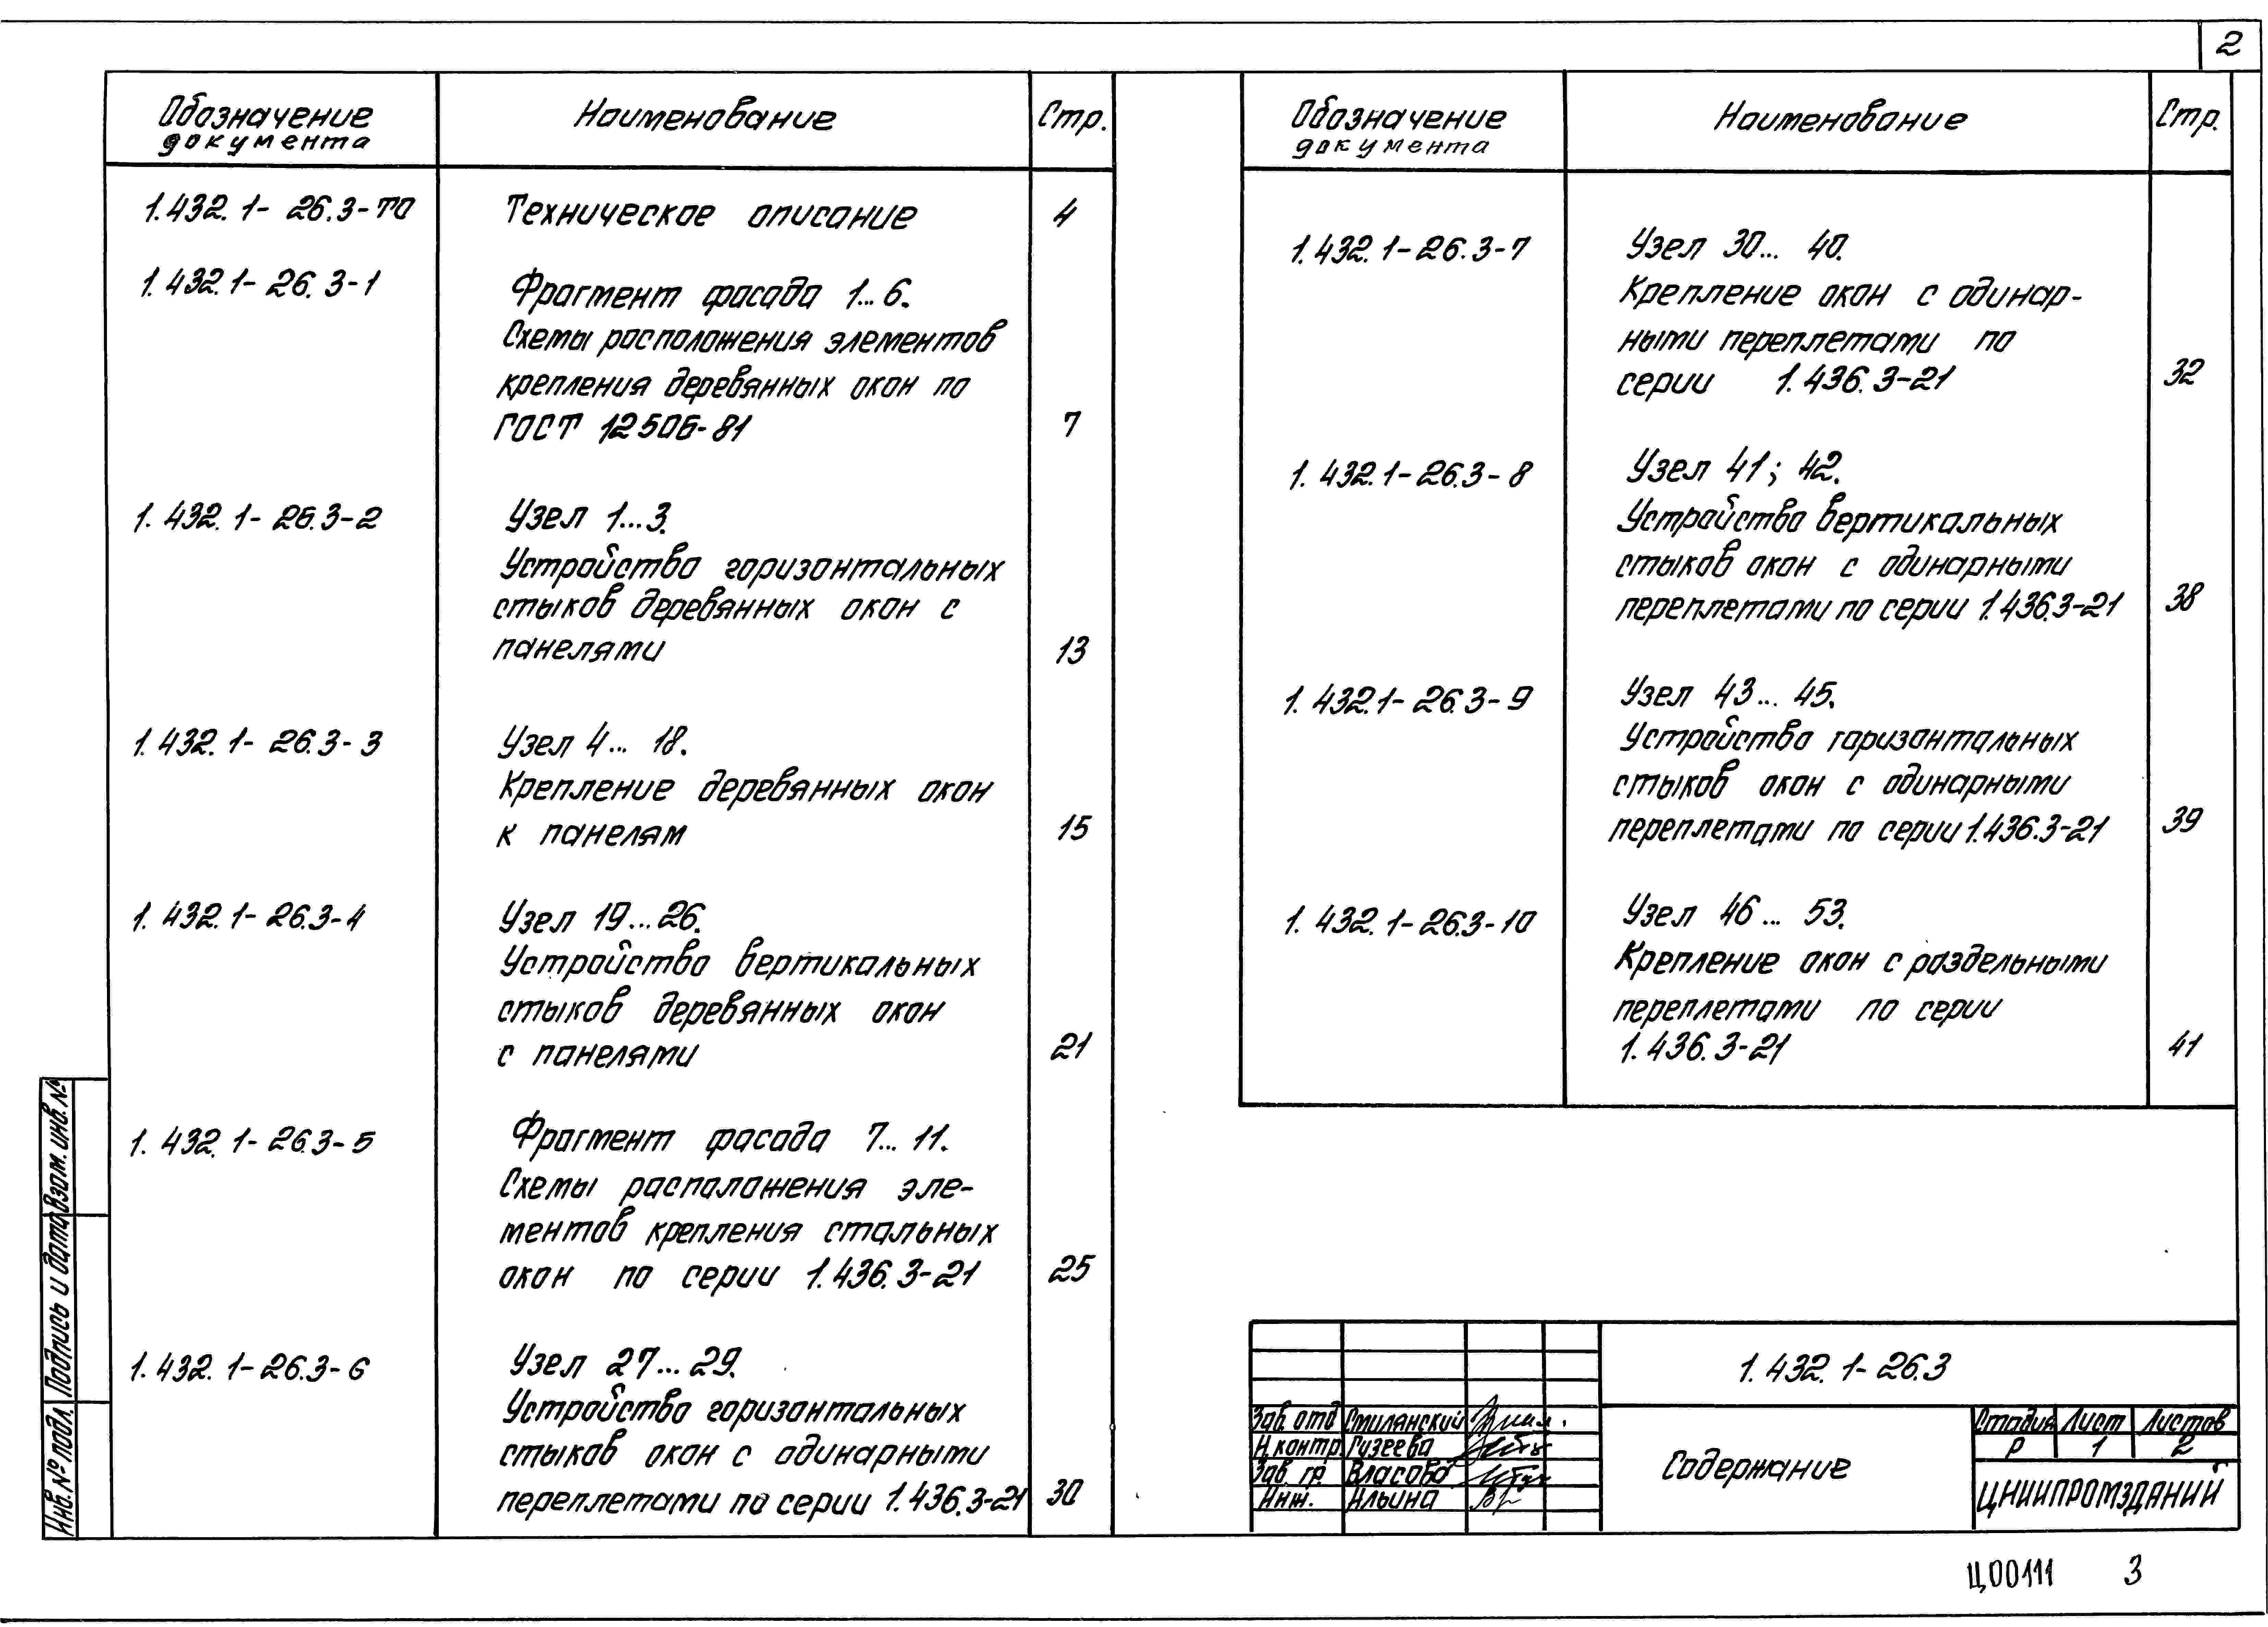 2
Обозначение документа
Наименование
Стр.
1.432.1-26.3-ТО
Техническое описание
4
1.432.1-26.3-1
Фрагмент фасада 1...6.
Схемы расположения элементов
крепления деревянных окон по
ГОСТ 12506-81
7
1.432.1-26.3-2
Узел 1...3.
Устройство горизонтальных
стыков деревянных окон с
панелями
13
1.432.1-26.3-3
Узел 4... 18.
Крепление деревянных окон
к панелям
15
1.432.1-26.3-4
Узел 19...26.
Устройство вертикальных
стыков деревянных окон
с панелями
21
1.432.1-26.3-5
Фрагмент фасада 7... 11.
Схемы расположения эле-
ментов крепления стальных
окон по серии 1.436.3-21
25
1.432.1-26.3-6
Узел 27...29.
Устройство горизонтальных
стыков окон с одинарными
переплетами по серии 1.436.3-21
30
Обозначение документа
Наименование
Стр.
1.432.1-26.3-7
Узел 30... 40.
Крепление окон с одинар-
ными переплетами по
серии 1.436.3-21
32
1.432.1-26.3-8
Узел 41; 42.
Устройство вертикальных
стыков окон с одинарными
переплетами по серии 1.436.3-21
38
1.432.1-26.3-9
Узел 43... 45.
Устройство горизонтальных
стыков окон с одинарными
переплетами по серии 1.436.3-21
39
1.432.1-26.3-10
Узел 46... 53.
Крепление окон с раздельными
переплетами по серии
1.436.3-21
41
Взам. инв. №
Подпись и дата
Инв. № подл.
1.432.1-26.3
Зав. отд Смилянский
Н.контр. Гузеева
Зав. гр. Власова
Инж. Ильина
Содержание
Стадия Лист Листов
Р 1 2
ЦНИИПРОМЗДАНИЙ
Ц00111 3